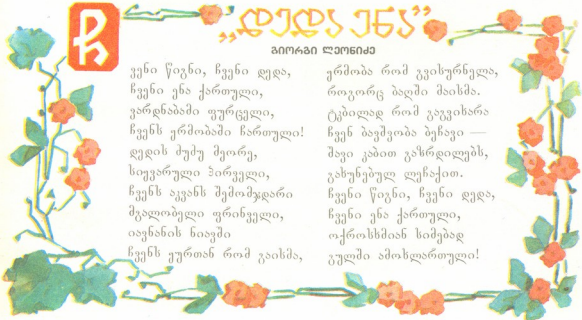 „დედა ენა“
გიორგი ლეონიძე
ჩვენი წიგნი, ჩვენი დედა,
ჩვენი ენა ქართული,
ვარდნაბამი ფურცელი,
ჩვენს ყრმობაში ჩართული!
დედის ძუძუ მეორე,
სიყვარული პირველი,
ჩვენს აკვანს შემომჯდარი
მგალობელი ფრინველი,
იავნანის ნიავში
ჩვენს ყურთან რომ გაისმა,
ყრმობა რომ გვისურნელა,
როგორც ბაღში მაისმა.
ტკბილად რომ გაგვიხარა
ჩვენ ბავშვობა ბეჩავი —
შავი კაბით გაზრდილებს,
გახუნებულ ლეჩაქით.
ჩვენი წიგნი, ჩვენი დედა,
ჩვენი ენა ქართული,
ოქროსხმიან სიმებად
გულში ამოსლართული!